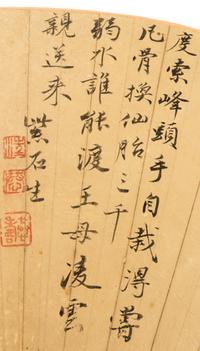 度索峰頭手自栽得嘗
凡骨換仙胎三千
弱水誰能渡王母凌雲
親送来
紫石生